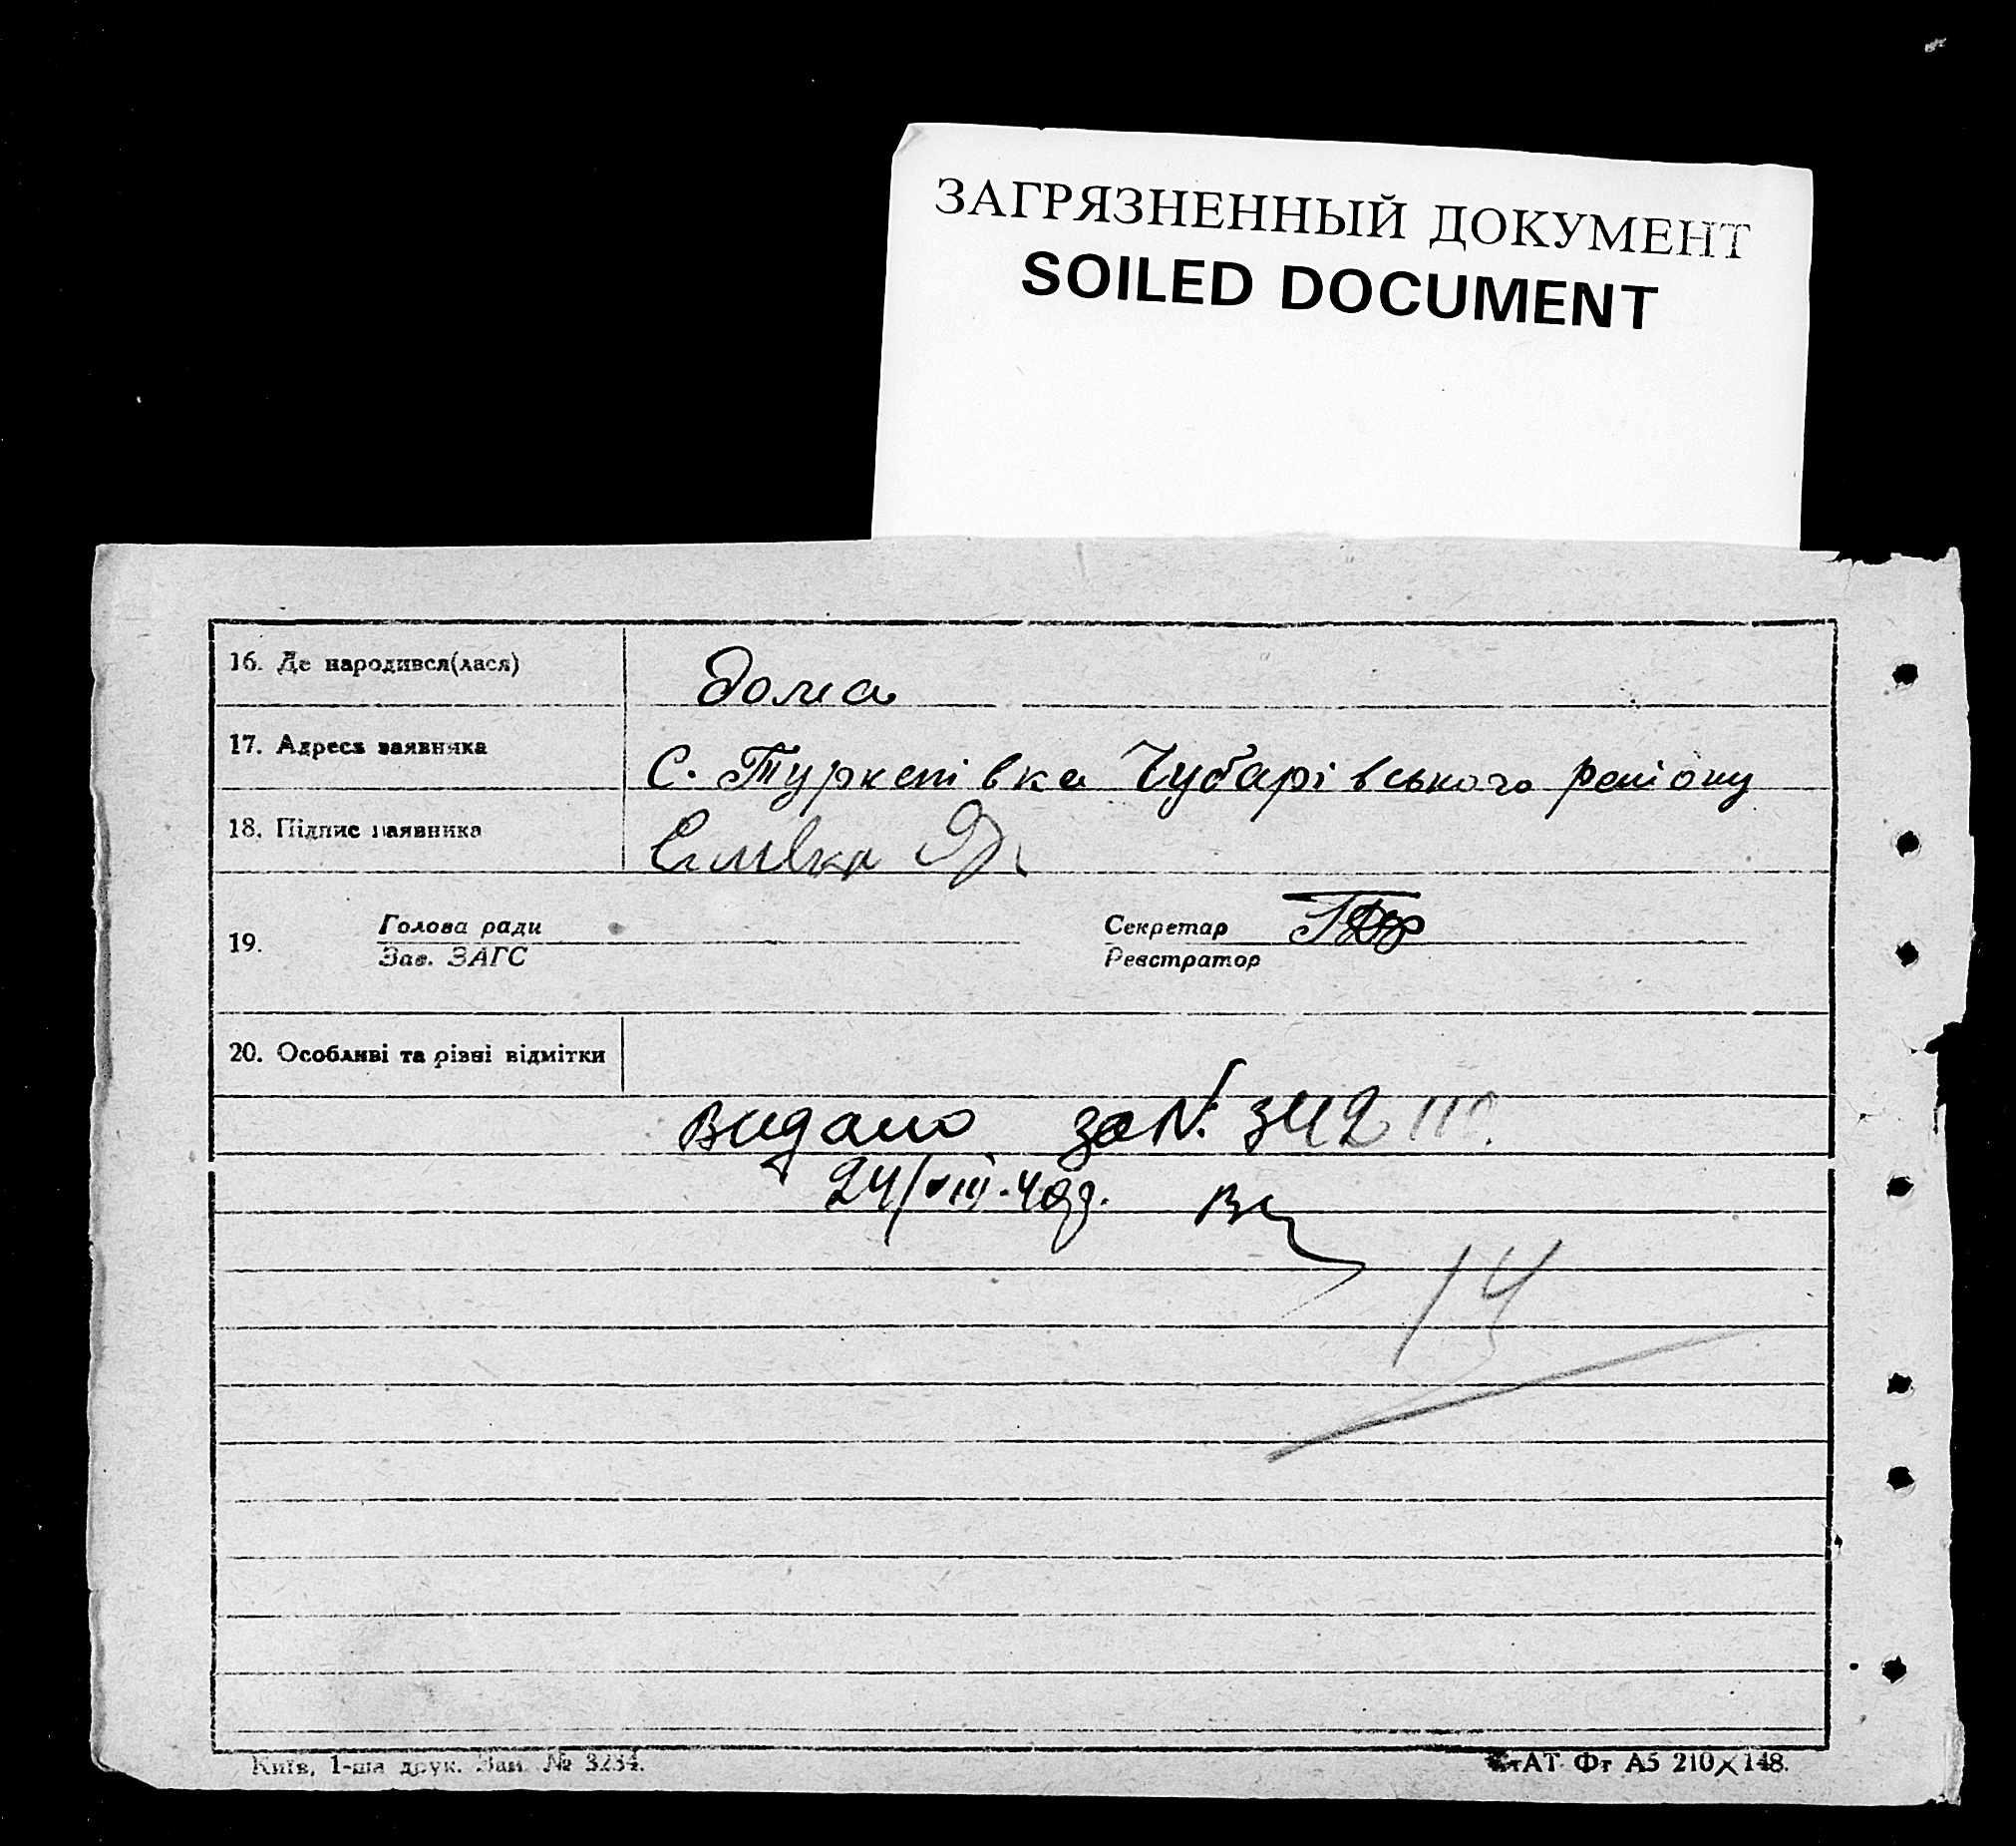 ЗАГРЯЗНЕННЫЙ ДОКУМЕНТ
SOILED DOCUMENT
16. Де народився(лася) дома
17. Адреса заявника с. Туркенівка Чубарівського району
18. Підпис заявника
19. Голова ради Секретар
Зав. ЗАГС Реєстратор
20. Особливі та різні відмітки
Видано за N. 342
24/VIII.40р.
14
Київ, 1-ша друк. Зам. № 3234.
Фт А5 210×148.